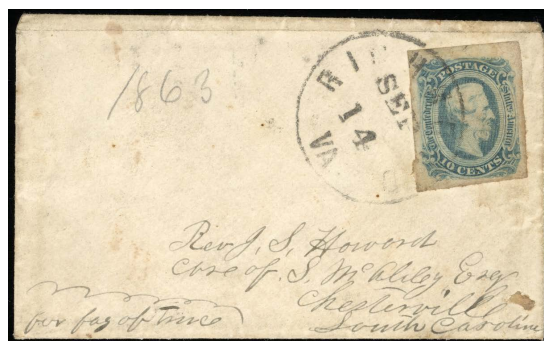 1863
RICH
SEP
14
VA
POSTAGE
The Confederate States America
10 CENTS
Rev. J. S. Howard
Care of S. McAliley Esq
Chesterville
South Carolina
per fag of truce